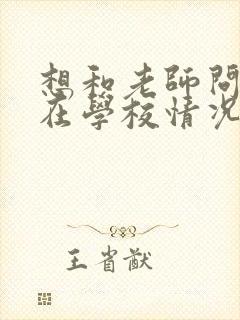 想和老師問
在學校情況
王省猷